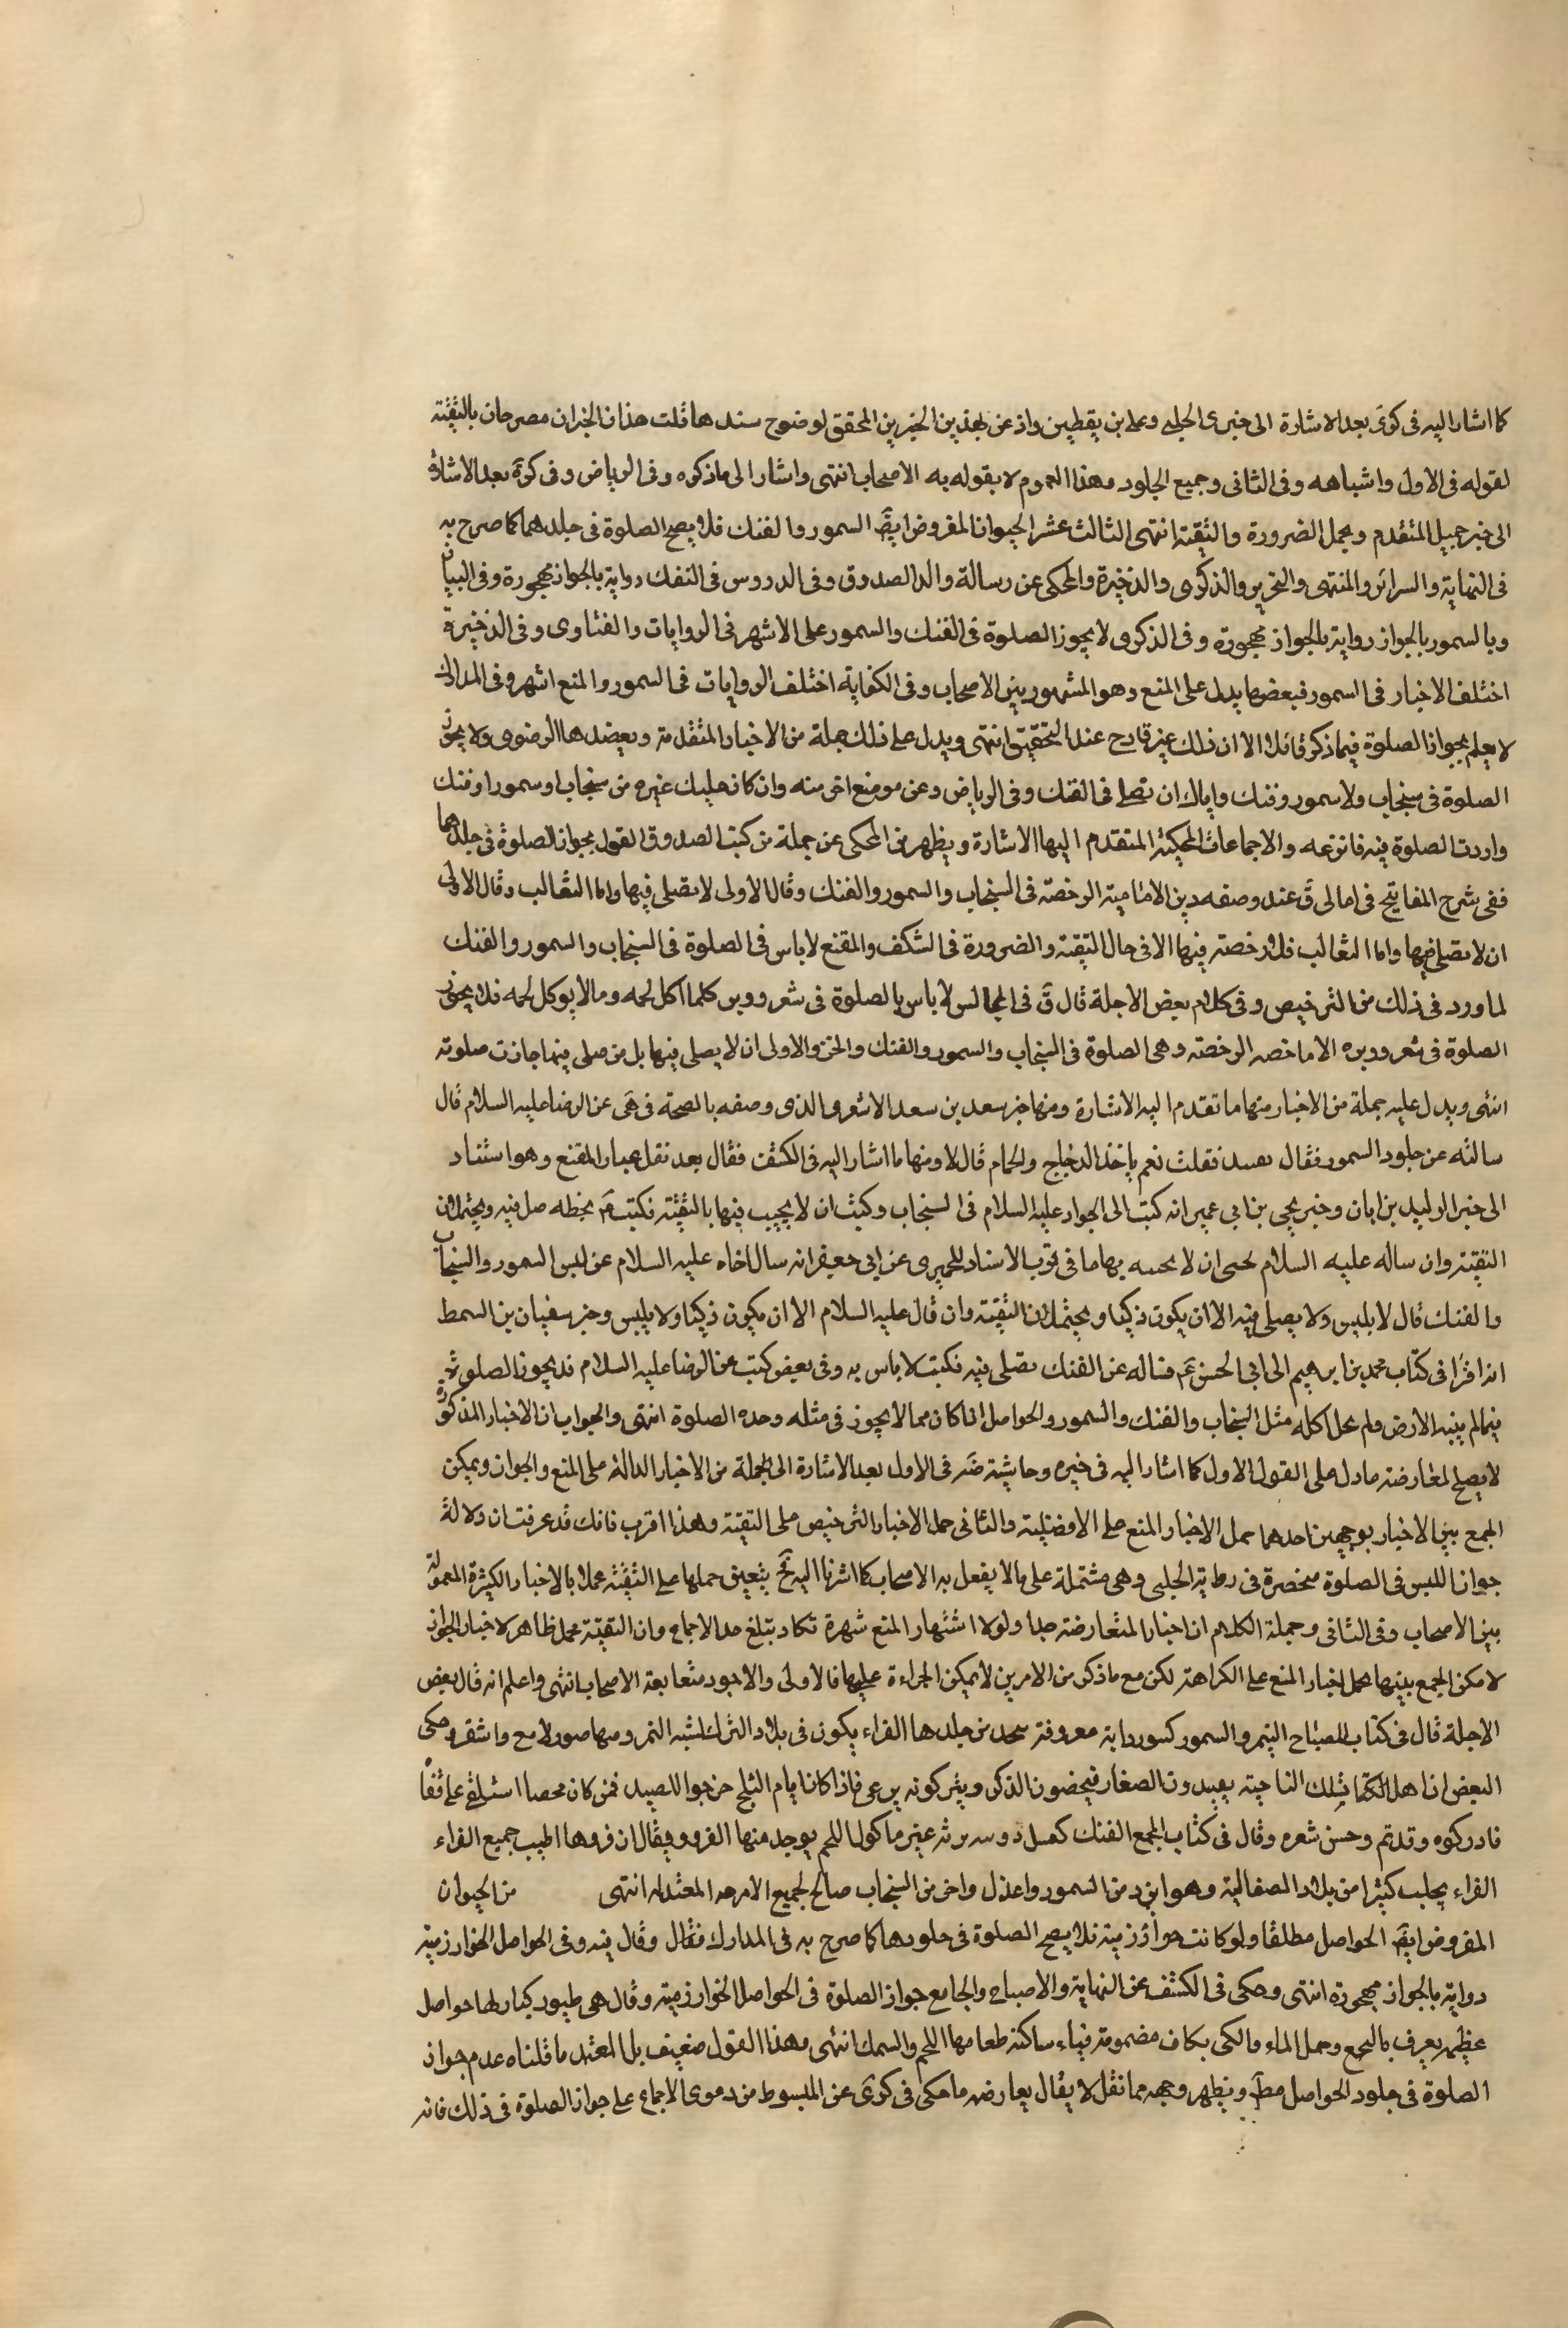 كما اشار اليه فى كرى بعد الاشارة الى خبرى الحلبى وعلى بن يقطين واذعن بهذين الخبرين المحقق لوضوح سندهما قلت هذان الخبران مصرحان بالتقية
لقوله فى الاول واشباهه وفى الثانى وجميع الجلود وهذا العموم لا يقول به الاصحاب انتهى واشار الى ما ذكره وفى الرياض وفى كرى بعد الاشارة
الى خبر جميل المتقدم ويحمل الضرورة والتقية انتهى الثالث عشر الحيوان المفروض ايضَ السمور والفنك فلا يصح الصلوة فى جلدهما كما صرح به
فى النهاية والسرائر والمنتهى والتحرير والذكرى والذخيرة والمحكى عن رسالة والد الصدوق وفى الدروس فى الفنك رواية بالجواز مهجورة وفى البيان
وبالسمور بالجواز رواية بالجواز مهجورة وفى الذكرى لا يجوز الصلوة فى الفنك والسمور على الاشهر فى الروايات والفتاوى وفى الذخيرة
اختلف الاخبار فى السمور فبعضها يدل على المنع وهو المشهور بين الاصحاب وفى الكفاية اختلف الروايات فى السمور والمنع اشهر وفى المدارك
لا يعلم بجواز الصلوة فيما ذكر قائلا الا ان ذلك غير قادح عند التحقيق انتهى ويدل على ذلك جملة من الاخبار المتقدمة ويعضدها الرضوى ولا يجوز
الصلوة فى سنجاب ولا سمور وفنك واياك ان تصلى فى الفنك وفى الرياض وعن موضع اخر منه وان كان عليك غيره من سنجاب او سمور او فنك
واردت الصلوة فيه فانزعه والاجماعات المحكية المتقدم اليها الاشارة ويظهر من المحكى عن جملة من كتب الصدوق القول بجواز الصلوة فى جلدهما
ففى شرح المفاتيح فى امالى قَ عند وصفه دين الامامية الرخصة فى السنجاب والسمور والفنك وقال الاولى لا تصلى فيها واما الثعالب وقال الاولى
ان لا تصلى فيها واما الثعالب فلا رخصة فيها الا فى حال التقية والضرورة فى الشكف والمقنع لا باس فى الصلوة فى السنجاب والسمور والفنك
لما ورد فى ذلك من الترخيص وفى كلام بعض الاجلة قال قَ فى المجالس لا باس بالصلوة فى شعر ووبر كلما اكل لحمه وما لا يوكل لحمه فلا يجوز
الصلوة فى شعر ووبره الا ما خصه الرخصة وهى الصلوة فى السنجاب والسمور والفنك والخز والاولى ان لا يصلى فيها بل من صلى فيما جازت صلوته
انتهى ويدل عليه جملة من الاخبار منها ما تقدم اليه الاشارة ومنها خبر سعد بن سعد الاشعرى الذى وصفه بالصحة فى هَى عن الرضا عليه السلام قال
سالته عن جلود السمور فقال يصيد فقلت نعم ياخذ الدجاج والحمام قال لا ومنها ما اشار اليه فى الكشف فقال بعد نقل عبار المقنع وهو استناد
الى خبر الوليد بن ابان وخبر يحيى بن ابى عمير انه كتب الى الجواد عليه السلام فى السنجاب وكيت ان لا يجيب فيها بالتقية فكتب عَم بخطه صل فيه ويحتملان
التقية وان ساله عليه السلام ان لا بها ما فى قرب الاسناد للحميرى عن ابى جعفر انه سال اخاه عليه السلام عن لبس السمور والسنجاب
والفنك قال لا يلبس ولا يصلى فيه الا ان يكون ذكيا ويحتملان التقية وان قال عليه السلام الا ان يكون ذكيا ولا يلبس وخبر سفيان بن السمط
انه اقرَا فى كتاب محمد بن ابرهيم الى ابى الحسن عَم فساله عن الفنك يصلى فيه فكتب لا باس به وفى بعض كتب عن الرضا عليه السلام قد يجوز الصلوة
فيما لم ينبه الارض ولم يحل اكله مثل السنجاب والفنك والسمور والحواصل اذا كان مما لا يجوز فى مثله وحده الصلوة انتهى والجواب ان الاخبار المذكورة
لا يصلح لمعارضة ما دل على القول الاول كما اشار اليه فى خيره وحاشية ضَه فى الاول بعد الاشارة الى الجملة من الاخبار الدالة على المنع والجواز ويمكن
الجمع بين الاخبار بوجهين احدهما حمل الاخبار المنع على الافضلية والثانى حمل الاخبار الترخيص على التقية وهذا اقرب فانك قد عرفت ان دلالة
جواز اللبس فى الصلوة منحصرة فى رواية الحلبى وهى مشتملة على ما لا يفعل به الاصحاب كما اشرنا اليه فَح يتعين حملها على التقية عملا بالاخبار الكثيرة المعمولة
بين الاصحاب وفى الثانى وجملة الكلام ان اخبار المتعارضة جدا ولولا اشتهار المنع شهرة تكاد بتلغ حد الاجماع وان التقية محمل ظاهر لاخبار الجواز
لامكن الجمع بينها بحمل اخبار المنع على الكراهة لكن مع ما ذكر من الامرين لا يمكن الجراءة عليها فالاولى والاجود متعابعة الاصحاب انتهى واعلم انه قال بعض
الاجلة قال فى كتاب المصباح التيم والسمور كسور دابة معروفة يتخذ من جلدها الفراء يكون فى بلاد الترك لشبه النمر ومنها صورلامع واشقر وحكى
البعض ان اهل تلك الناحية يصيدون الصغار فيخصون الذكر ويتركونه يرعى فاذا كان ايام الثلج خرجوا للصيد فمن كان مخصيا استلقى على قفاه
فادركوه وقدتم وحسن شعره وقال فى كتاب المجمع الفنك كعسل دويبة برية غير ماكول اللحم يوجد منها الفرو ويقال ان فروها اطيب جميع الفراء
الفراء يجلب كثيرا من بلاد الصقالبة وهو ابرد من السمور واعدل واحر من السنجاب صالح لجميع الامزجة المعتدلة انتهى من الحيوان
المفروض ايضَ الحواصل مطلقا ولو كانت خوارزمية فلا يصح الصلوة فى جلودها كما صرح به فى المدارك فقال وقال فيه وفى الحواصل الخوارزمية
رواية بالجواز مهجورة انتهى وحكى فى الكشف عن النهاية والاصباح والجامع جواز الصلوة فى الحواصل الخوارزمية وقال هى طيور كبار لها حواصل
عظيمة يعرف بالبجع وجمل الماء والكى بكاف مضمومة فياء ساكنة طعامها اللحم والسمك انتهى وهذا القول ضعيف بل المعتمد ما قلناه عدم جواز
الصلوة فى جلود الحواصل مطَ ويظهر وجهه مما نقل لا يقال يعارضه ما حكى فى كرى عن المبسوط من دعوى الاجماع على جواز الصلوة فى ذلك فانه